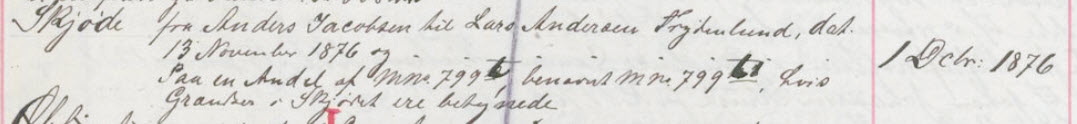 Skjøde fra Anders Jacobsen til Lars Andersen Frydenlund, dat. 1 Decbr: 1876
13 November 1876 og
Paa en Andel af Mno. 799 b, benævnt Mno. 799 b1, hvis
Grændser i Skjødet ere betegnede